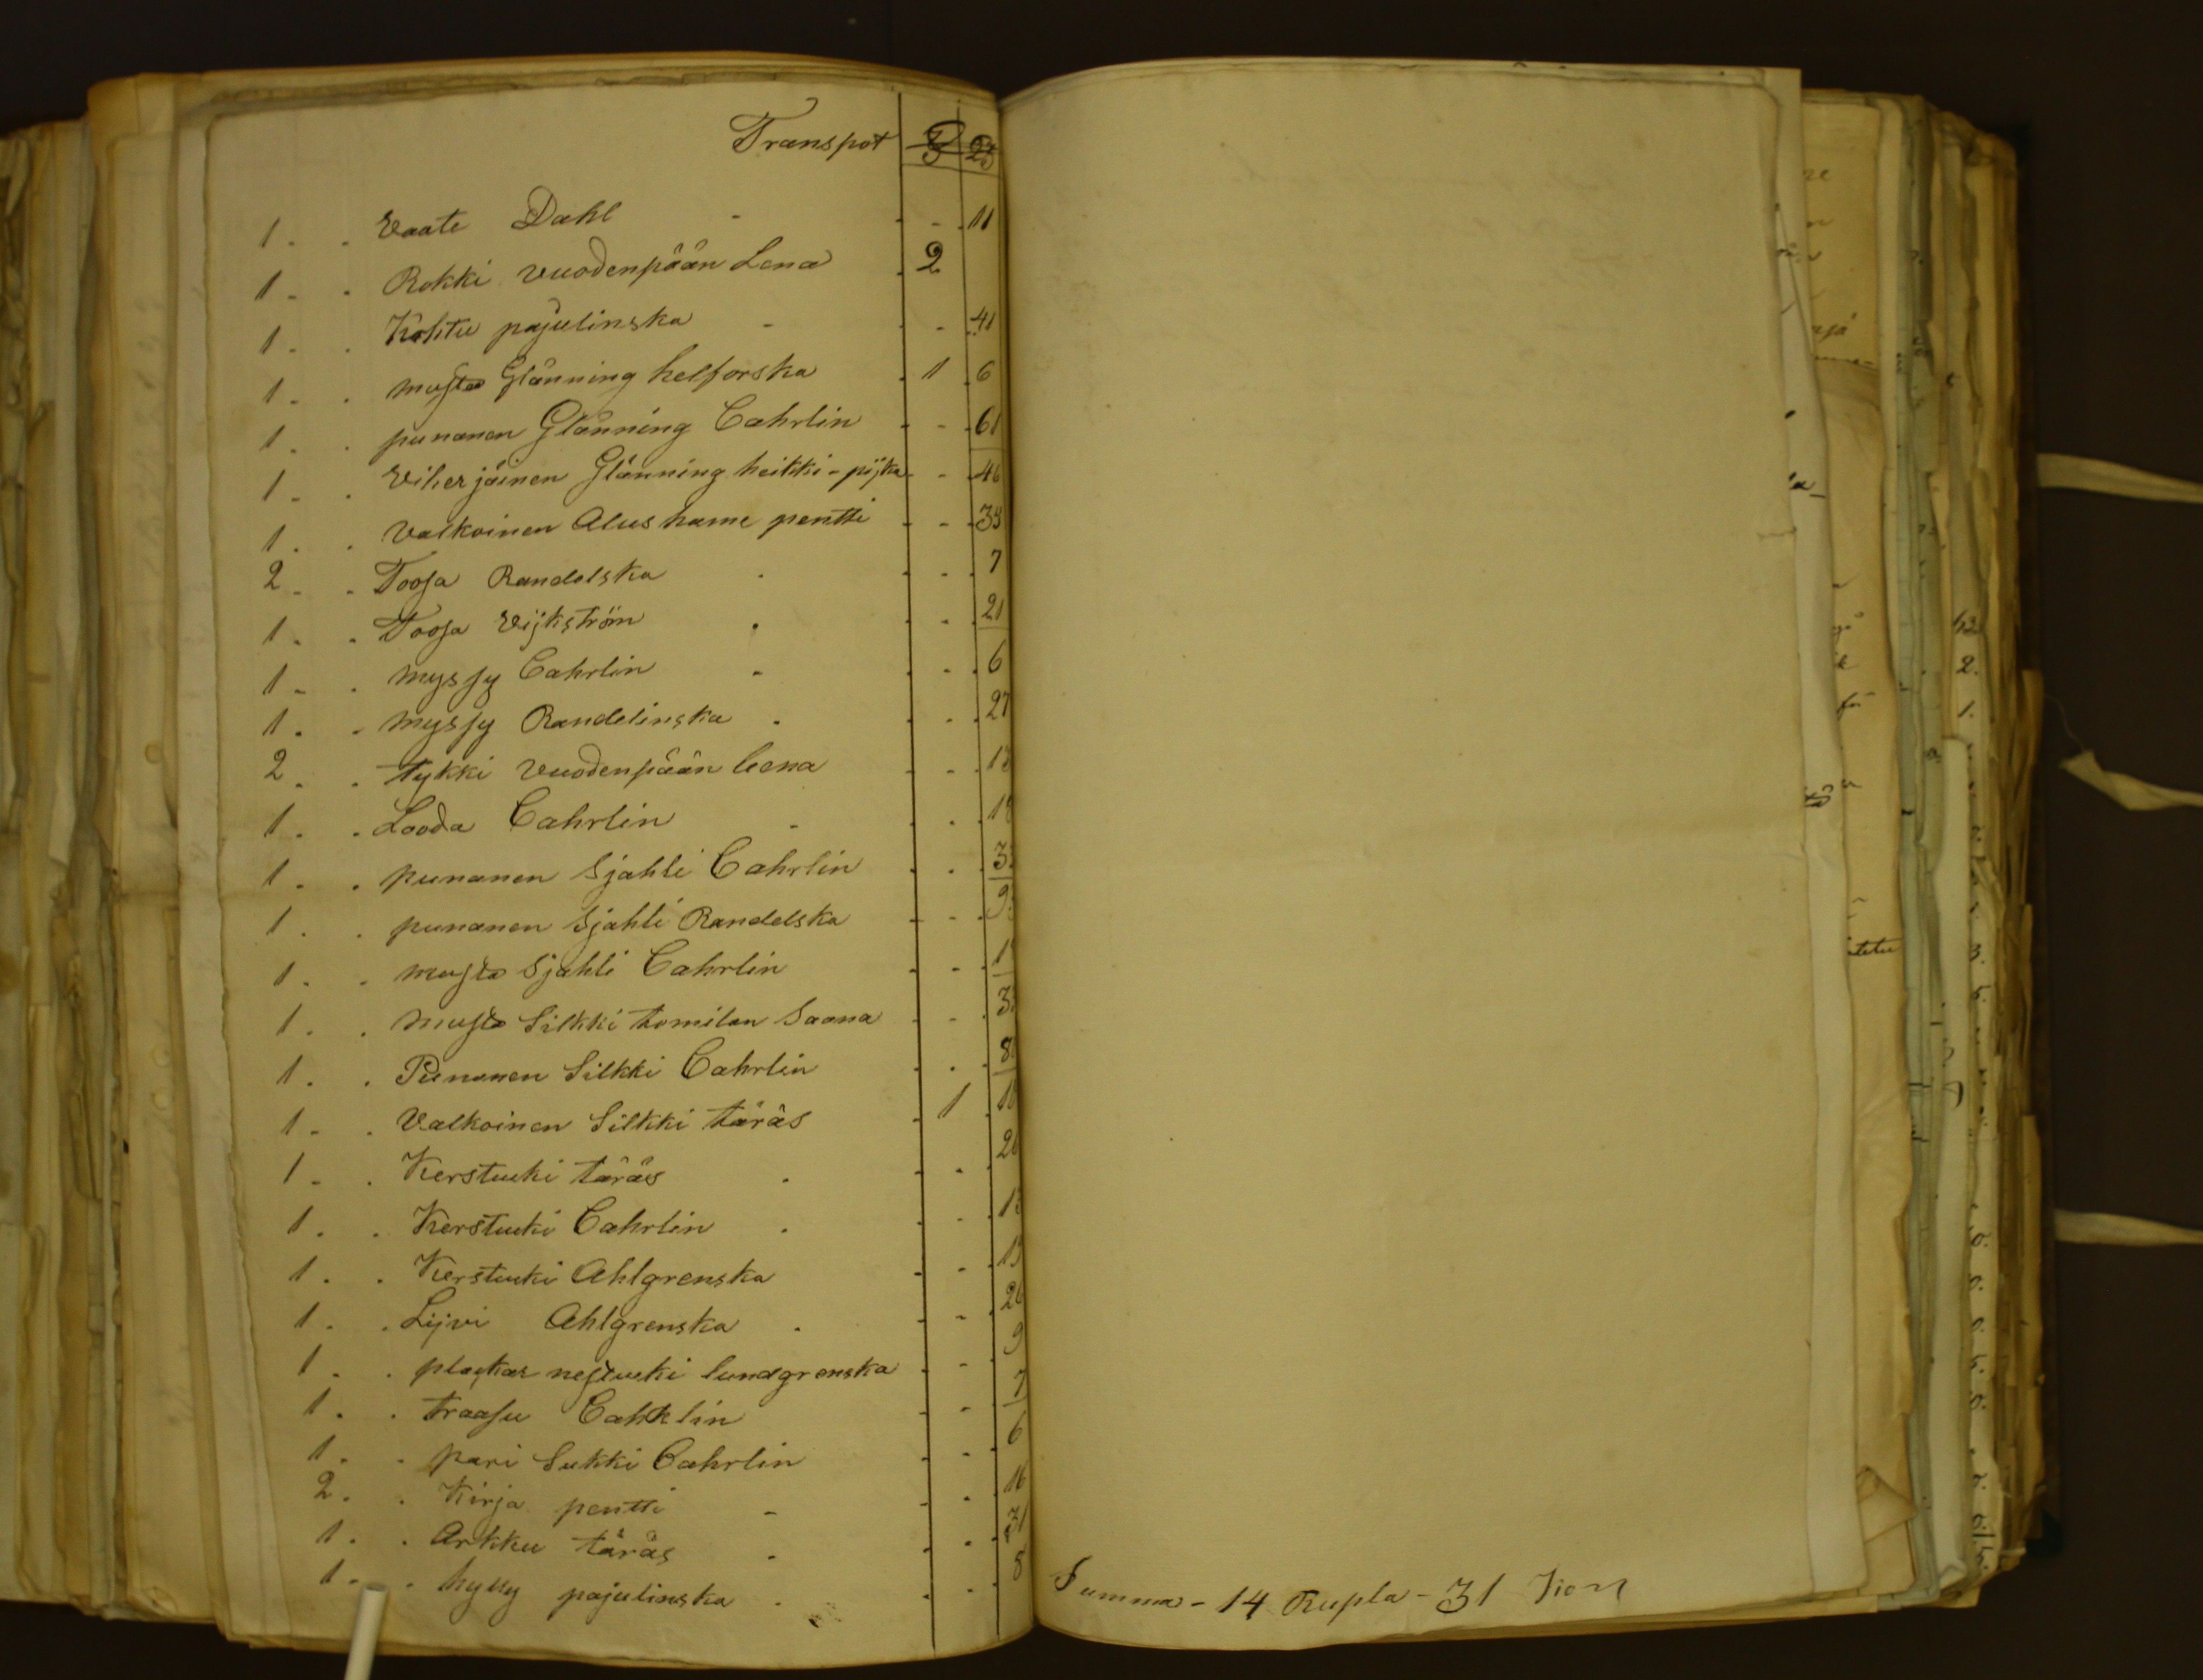 Transpot 3 23
1 - - Vaate Dahl - - - 11
1 - - Rokki vuodenpään Lena - 2
1 - - Kohtu pajulinska - - - 41
1 - - musta Glänning helforska - 1 6
1 - - punanen Glänning Cahrlin - - 61
1 - - Viherjäinen Glänning heikki - pijka - - 46
1 - - Valkoinen Alus hame pentti - - 35
2 - - Toosa Randelska - - - 7
1 - - Toosa Vijkström - - - 21
1 - - myssy Cahrlin - - - 6
1 - - myssy Randelinska - - - 27
2 - - tykki vuodenpään leena - - 13
1 - - Looda Cahrlin - - - 18
1 - - punanen Sjahli Cahrlin - - 3
1 - - punanen Sjahli Randelska - - 9
1 - - musta Sjahli Cahrlin - - 1
1 - - musta Silkki tomilan Saana - - 3
1 - - Punanen Silkki Cahrlin - - 8
1 - - Valkoinen Silkki täräs - 1 10
1 - - Kerstuuki täräs - - - 20
1 - - Kerstuuki Cahrlin - - - 13
1 - - Kerstuuki Ahlgrenska - - 15
1 - - Lijvi Ahlgrenska - - - 26
1 - - nestuuki lundgrenska - - 9
1 - - traasu Cahrlin - - 7
1 - - pari Sukki Cahrlin - - 6
2 - - Kirja pentti - - - 16
1 - - Arkku täräs - - - 31
1 - - hylly pajulinska - - - 8
Summa - 14 Rupla - 31